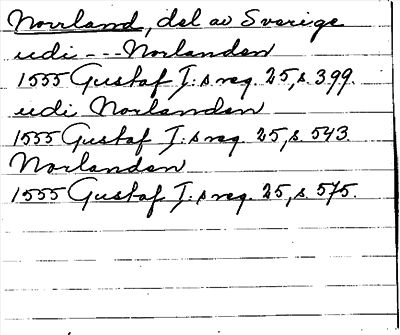 Norrland, del av Sverige
udi --- Norlanden
1555 Gustaf I:s reg. 25, s. 399.
udi Norlanden
1555 Gustaf I:s reg. 25, s. 543.
Norlanden
1555 Gustaf I:s reg. 25, s. 575.